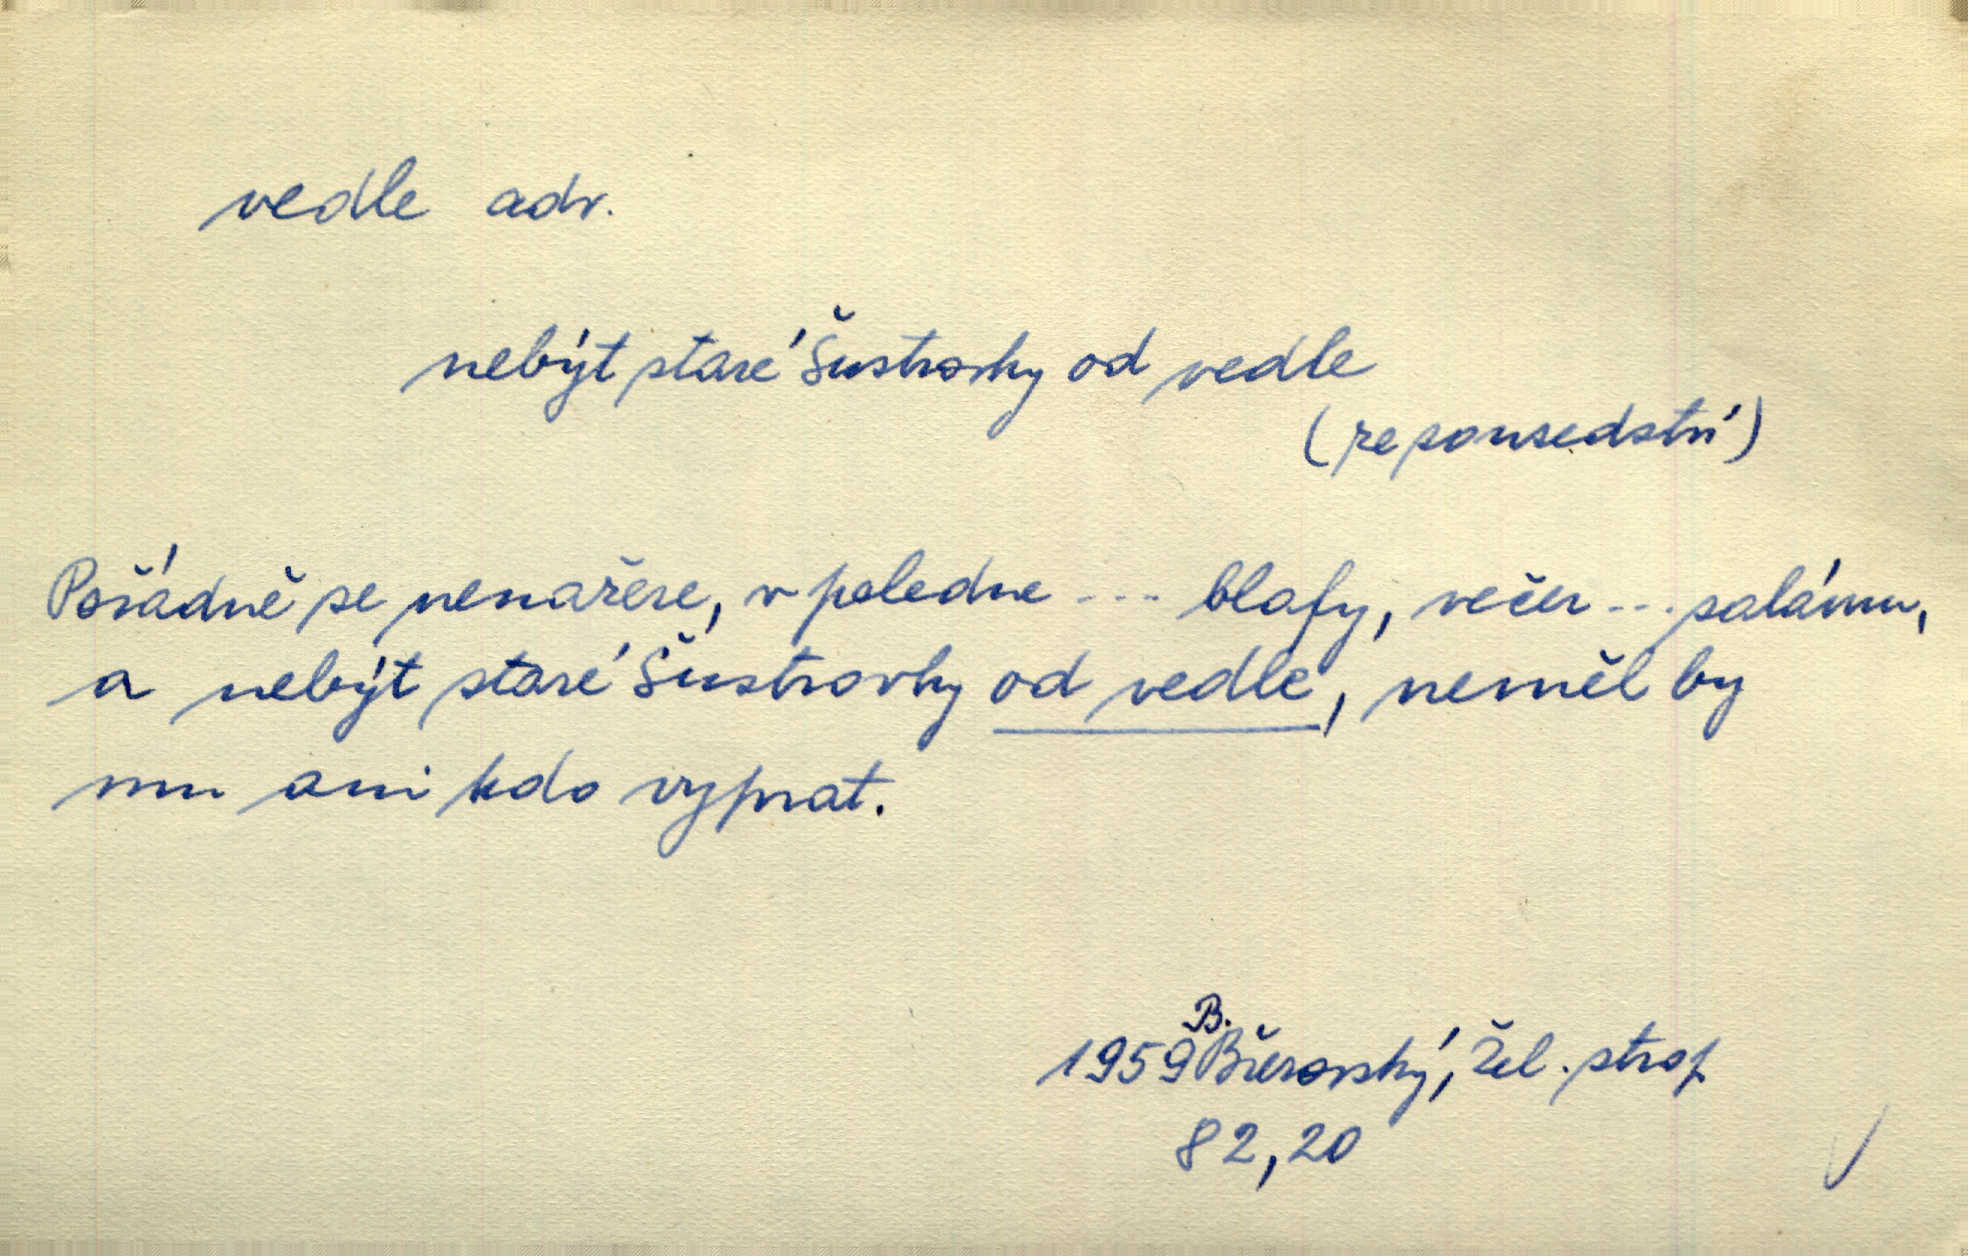 vedle adv.
nebýt staré Šustrovky od vedle
(ze sousedství)
Pořádně se nenažere, v poledne --- blafy, večer --- salámu,
a nebýt staré Šustrovky od vedle, neměl by
mu ani kdo vyprat.
B.
1959 Březovský, Žel. strop
82,20